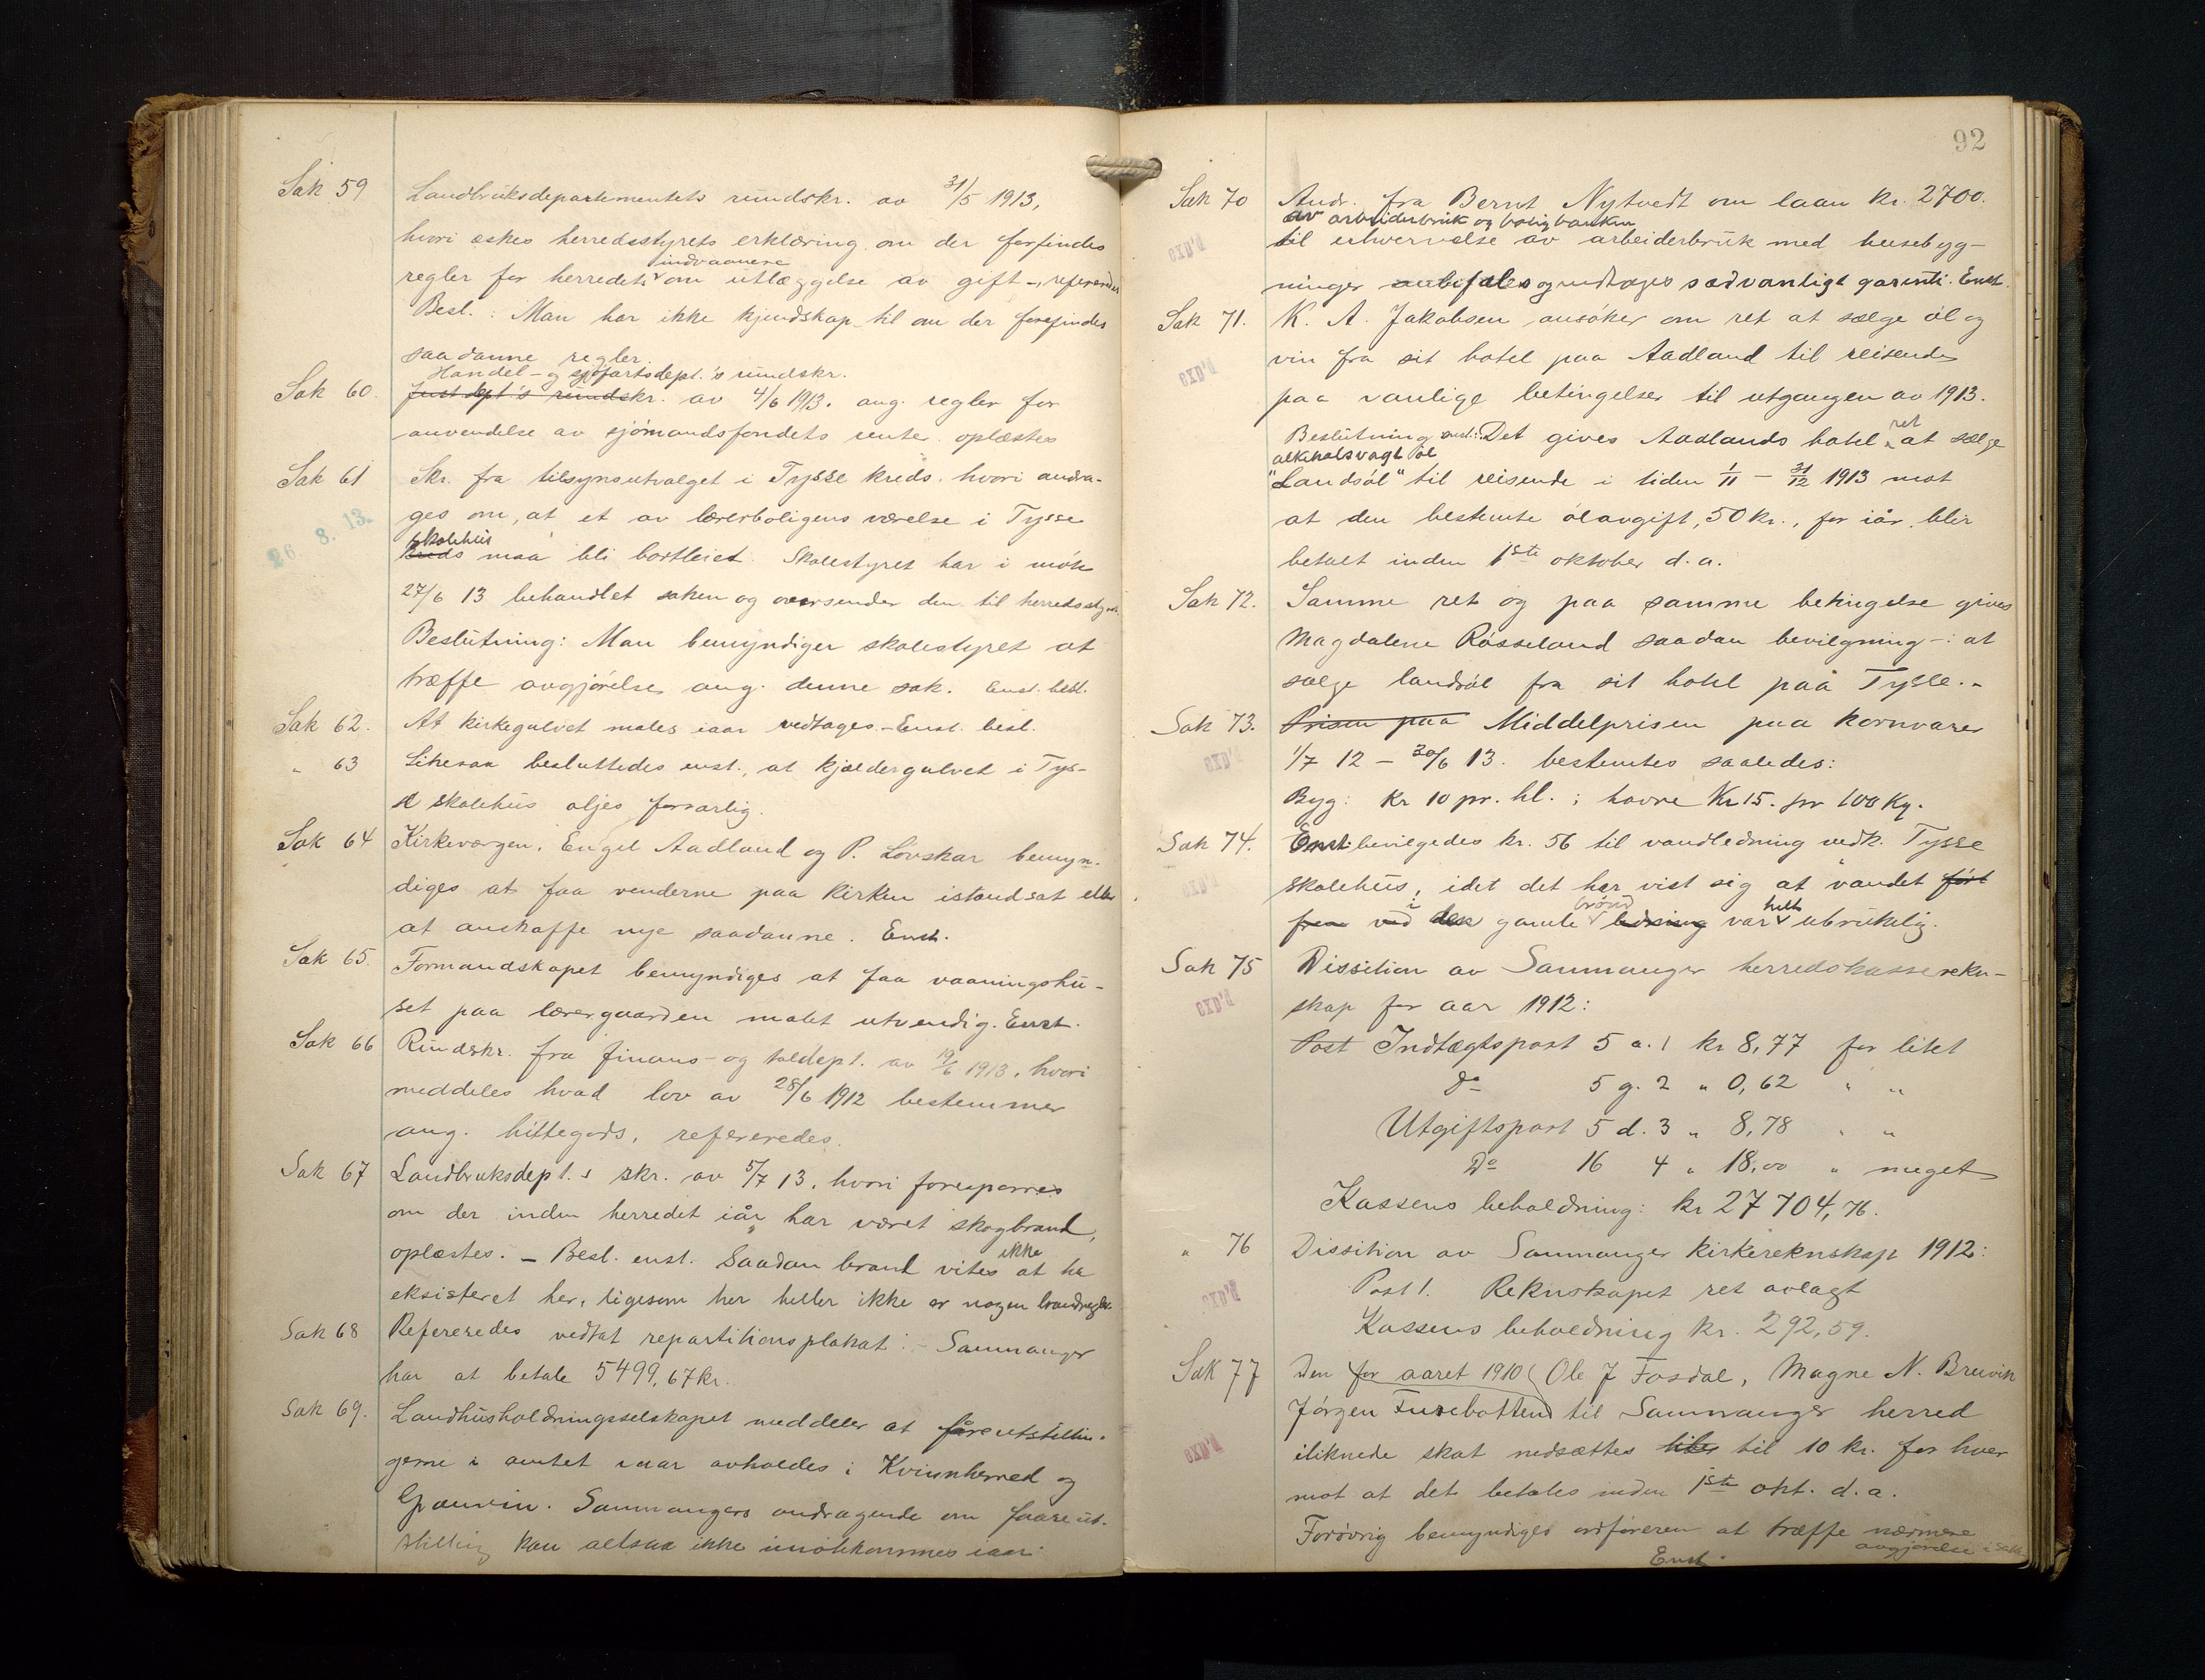 Sak 59 Landbruksdepartementets rundskr. av 31/5 1913,
hvori æskes herredsstyrets erklæring om der forfindes
indvaanere
regler for herredets om utlæggelse av gift -, refereredes
Besl.: Man har ikke kjendskap til om der forefindes
saadanne regler.
Handel- og sjøfartsdept.'s rundskr.
Sak 60. Just dept's rundskr. av 4/6 1913. ang. regler for
anvendelse av sjømandsfondets renter oplæstes
Sak 61 Skr. fra tilsynsutvalget i Tysse kreds, hvori andra-
ges om, at et av lærerboligens værelse i Tysse
26. 8. 13.
skolehus
kreds maa bli bortleiet. Skolestyret har i møte
27/6 13 behandlet saken og oversender den til herredsstyret.
Beslutning: Man bemyndiger skolestyret at
træffe avgjørelse ang. denne sak. Enst. besl.
Sak 62. At kirkegulvet males iaar vedtages. - Enst. besl.
" 63 Likesaa besluttedes enst., at kjældergulvet i Tys-
se skolehus oljes forsvarlig.
Sak 64 Kirkevergen, Engel Aadland og P. Løvskar bemyn-
diges at faa venderne paa kirken istandsat eller
at anskaffe nye saadanne. Enst.
Sak 65. Formandskapet bemyndiges at faa vaaningshu-
set paa lærergaarden malet utvendig. Enst.
Sak 66 Rundskr. fra finans- og toldept. av 19/6 1913, hvori
meddeles hvad lov av 28/6 1912 bestemmer
ang. hittegods, refereredes.
Sak 67 Landbruksdept.s skr. av 5/7 13, hvori forespørres
om der inden herredet iår har været skogbrand,
oplæstes. - Besl. enst. Saadan brand vites ikke at ha
eksisteret her, ligesom her heller ikke er nogen brandregler
Sak 68 Refereredes vedtat repartitionsplakat: - Samnanger
har at betale 5499,67 kr.
Sak 69. Landhusholdningsselskapet meddeler at fåreutstillin-
gerne i amtet iaar avholdes i Kvinnherred og
Granvin. Samnangers andragende om faareut-
stilling kan altsaa ikke imøtekommes iaar.
92
Sak 70 Andr. fra Bernt Nytvedt om laan kr. 2700.
av arbeiderbruk og boligbanken
til erhvervelse av arbeiderbruk med husebyg-
ninger anbefales og mottages sædvanligt garanti. Enst.
Sak 71. K. A. Jakobsen ansøker om ret at sælge øl og
vin fra sit hotel paa Aadland til reisende
paa vanlige betingelser til utgangen av 1913.
Beslutning enst.: Det gives Aadlands hotel ret at sælge
alkoholsvagt øl
"Landsøl" til reisende i tiden 1/11 - 31/12 1913 mot
at den bestemte ølavgift, 50 kr., for iår, blir
betalt inden 1ste oktober d.a.
Sak 72. Samme ret og paa samme betingelse gives
Magdalene Røsseland saadan bevilgning -: at
sælge landsøl fra sit hotel paa Tysse. -
Sak 73. Prisen paa Middelprisen paa kornvarer
1/7 12 - 30/6 13. bestemtes saaledes:
Byg: kr 10 pr. hl.; havre Kr 15. pr 100 Kg.
Sak 74. Enst. bevilgedes kr. 56 til vandledning vedk. Tysse
skolehus, idet det har vist sig at vandet ført
fra ved i den gamle brønd ledning var helt ubrukelig.
Sak 75 Dissition av Samnanger herredskasserekn-
skap for aar 1912:
Post Indtægtspost 5 a. 1 kr 8,77 for litet
Do 5 g. 2 " 0,62 " "
Utgiftspost 5 d. 3 " 8,78 " "
Do 16 4 " 18,00 " meget
Kassens beholdning: kr 27704,76.
" 76 Dissition av Samnanger kirkereknskap 1912:
Post 1. Reknskapet ret avlagt
Kassens beholdning kr. 292,59.
Sak 77 Den for aaret 1910 (Ole J Fosdal, Magne N. Bruvik
Jørgen Furebotten) til Samnanger herred
iliknede skat nedsættes til 10 kr. for hver
mot at det betales inden 1ste okt. d.a.
Forøvrig bemyndiges ordføreren at træffe nærmere
avgjørelse i saken
Enst.